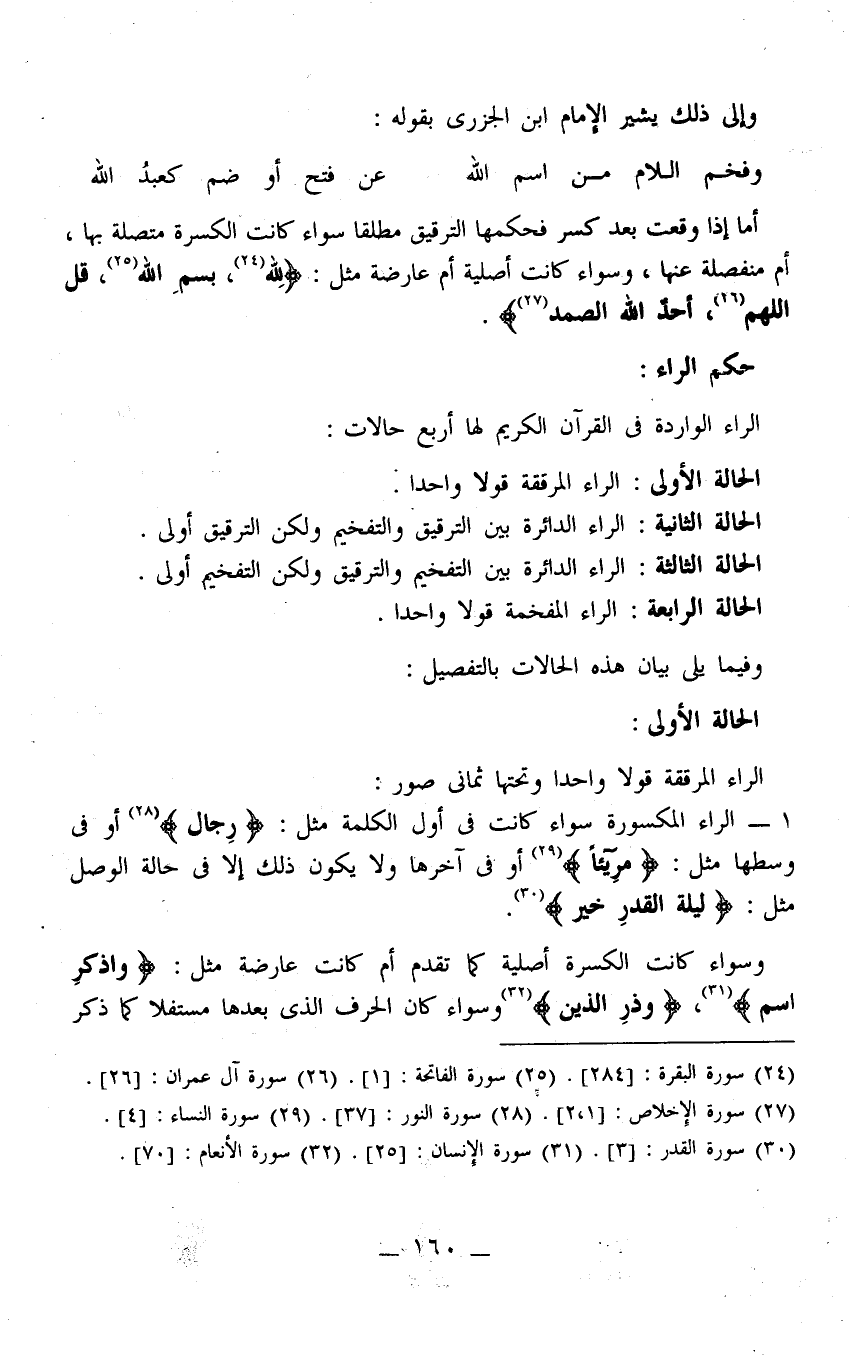 وإلى ذلك يشير الإمام ابن الجزرى بقوله :
وفخـم الـلام مـن اسم الله عن فتح أو ضم كعبدُ الله
أما إذا وقعت بعد كسر فحكمها الترقيق مطلقا سواء كانت الكسرة متصلة بها ،
أم منفصلة عنها ، وسواء كانت أصلية أم عارضة مثل : ﴿لِلّٰه(٢٤)، بسمِ الله(٢٥)، قل
اللهم(٢٦)، أحدٌ الله الصمد(٢٧)﴾ .
حكم الراء :
الراء الواردة فى القرآن الكريم لها أربع حالات :
الحالة الأولى : الراء المرققة قولا واحدا .
الحالة الثانية : الراء الدائرة بين الترقيق والتفخيم ولكن الترقيق أولى .
الحالة الثالثة : الراء الدائرة بين التفخيم والترقيق ولكن التفخيم أولى .
الحالة الرابعة : الراء المفخمة قولا واحدا .
وفيما يلى بيان هذه الحالات بالتفصيل :
الحالة الأولى :
الراء المرققة قولا واحدا وتحتها ثمانى صور :
١ ــ الراء المكسورة سواء كانت فى أول الكلمة مثل : ﴿ رِجال ﴾(٢٨) أو فى
وسطها مثل : ﴿ مرِيٓئاً ﴾(٢٩) أو فى آخرها ولا يكون ذلك إلا فى حالة الوصل
مثل : ﴿ ليلة القدرِ خير ﴾(٣٠).
وسواء كانت الكسرة أصلية كما تقدم أم كانت عارضة مثل : ﴿ واذكرِ
اسم ﴾(٣١)، ﴿ وذرِ الذين ﴾(٣٢)وسواء كان الحرف الذى بعدها مستفلا كما ذكر
(٢٤) سورة البقرة : [٢٨٤] . (٢٥) سورة الفاتحة : [١] . (٢٦) سورة آل عمران : [٢٦] .
(٢٧) سورة الإخلاص : [٢،١] . (٢٨) سورة النور : [٣٧] . (٢٩) سورة النساء : [٤] .
(٣٠) سورة القدر : [٣] . (٣١) سورة الإنسان : [٢٥] . (٣٢) سورة الأنعام : [٧٠] .
ــ ١٦٠ ــ